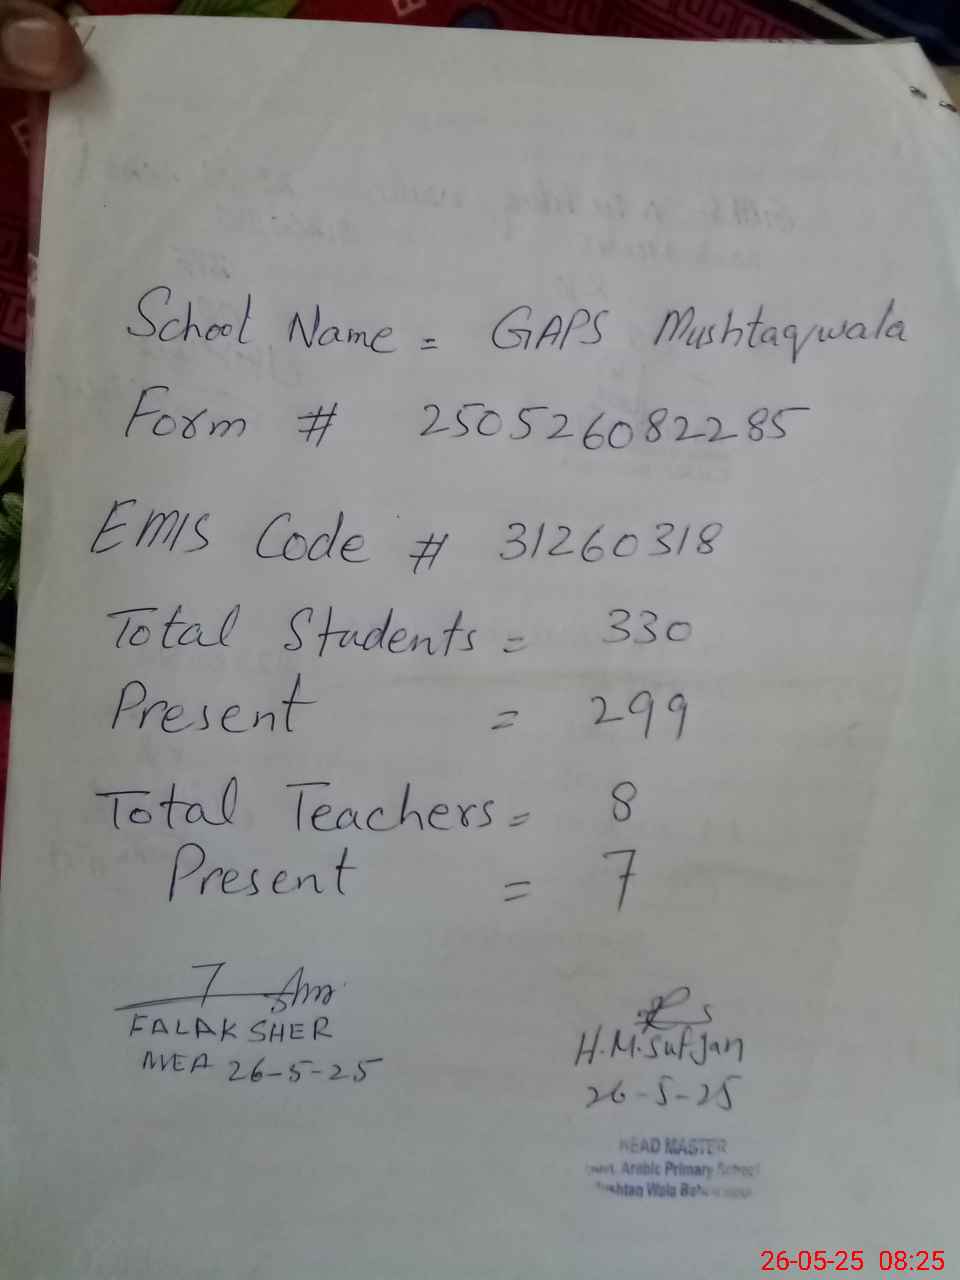 School Name = GAPS Mushtaqwala
Form # 250526082285
EMIS Code # 31260318
Total Students = 330
Present = 299
Total Teachers = 8
Present = 7
FALAK SHER
MEA 26-5-25
H.M.Sufjan
26-5-25
HEAD MASTER
Arabic Primary School
Wala
26-05-25 08:25